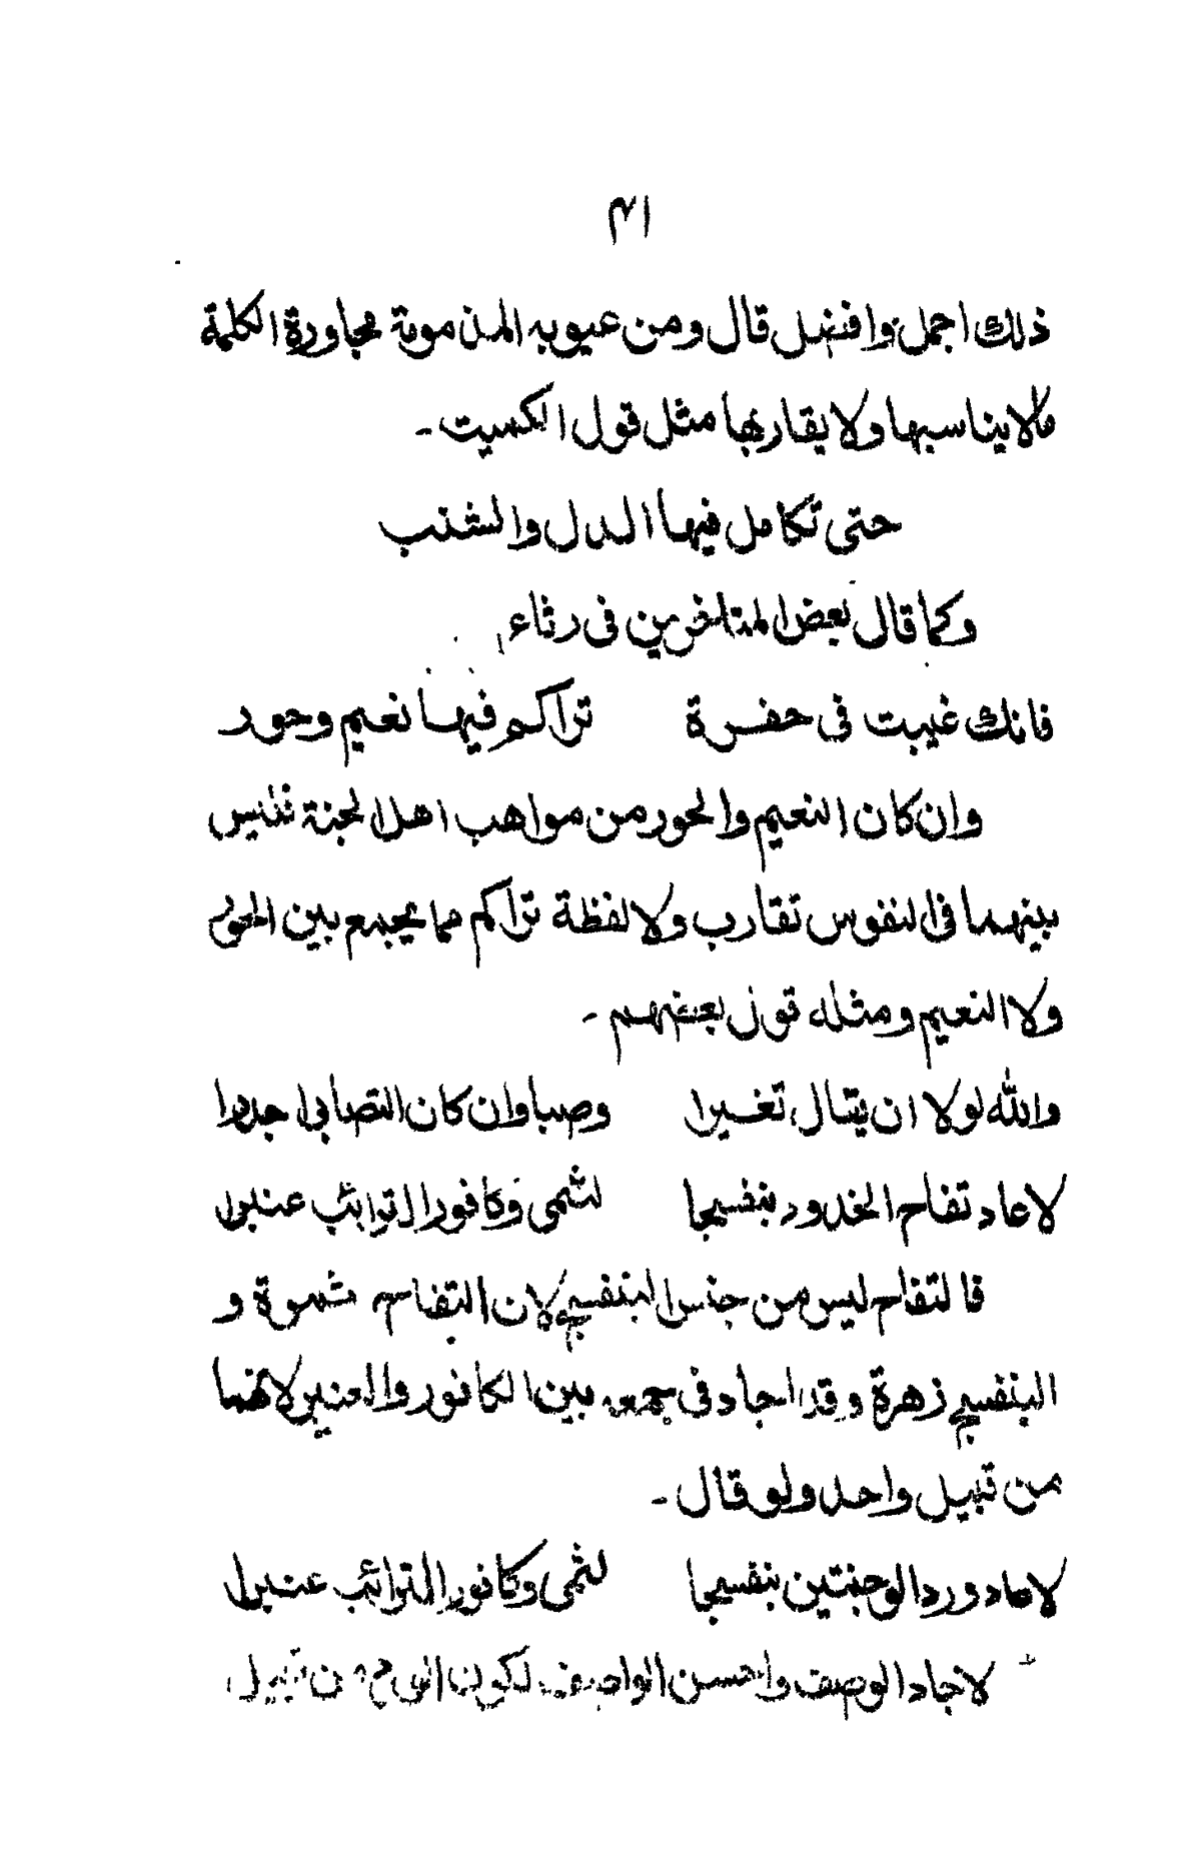 ٤١
ذلك اجمل وافضل قال ومن عيوبه المذمومة مجاورة الكلمة
مالا يناسبها ولا يقاربها مثل قول الكميت ـ
حتى تكامل فيها الدل والشنب
وكما قال بعض المتاخرين فى رثاء
فانك غيبت فى حفرة تراكم فيها نعيم وحور
وان كان النعيم والحور من مواهب اهل الجنة فليس
بينهما فى النفوس تقارب ولا لفظة تراكم مما يجمع بين الحور
ولا النعيم ومثله قول بعضهم ـ
والله لولا ان يقال تغيرا وصبا وان كان التصابى اجدرا
لاعاد تفاح الخدود بنفسجا لثمى وكافور الترائب عنبرا
فالتفاح ليس من جنس البنفسج لان التفاح ثمرة و
البنفسج زهرة وقد اجاد فى جمعه بين الكافور والعنبر لانهما
من قبيل واحد ولو قال ـ
لاعاد ورد الوجنتين بنفسجا لثمى وكافور الترائب عنبرا
لاجاد الوصف واحسن الواصف لكون من قبيل